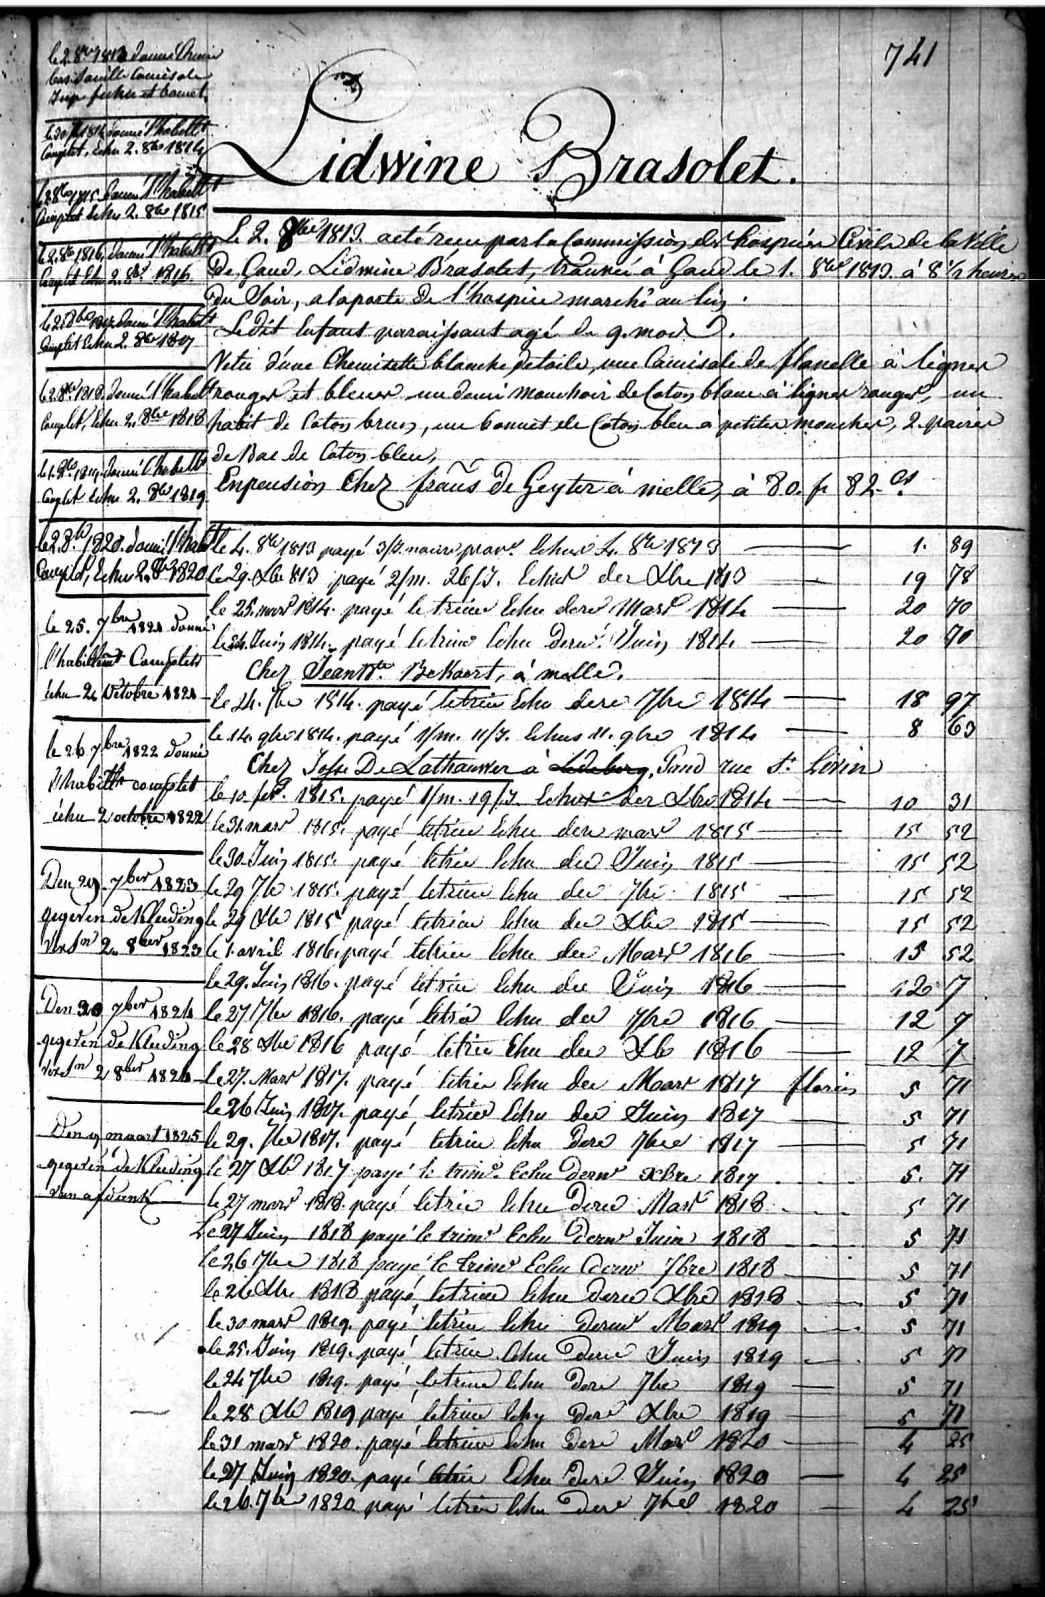 741
Lidwine Brasolet.
le 2 8bre 1813 donné Chemise
bas
Jupe fichu et bonnet
1814 donné l'habillt
Complet, Echu 2. 8bre 1814
le 8bre 1815 donné l'habillt
Complet Echu 2. 8bre 1815
le 2. 8bre 1816, donné l'habillt
Complet Echu 2. 8bre 1816
donné l'habillt
Complet Echu 2. 8bre 1817
le 2. 8bre 1818 donné l'habillt
Complet, Echu 2. 8bre 1818
le 1. 8bre 1819 donné l'habillt
Complet Echu 2. 8bre 1819
le 2. 8bre 1820. donné l'habillt
Complet, Echu 2. 8bre 1820
le 25. 7bre 1821 donné
l'habillmt Complets
échu 2 Octobre 1821
le 26 7bre 1822 donné
l'habillt complet
échu 2 octobre 1822
Den 29. 7ber 1823
gegeven de Kleeding
2 8ber 1823
Den 30 7ber 1824
gegeven de Kleeding
2 8ber 1824
Den 9 maart 1825
gegeven de Kleeding
Le 2. 8bre 1813. acté reçu par la Commission des hospices Civils de la Ville
de Gand, Lidwine Brasolet, trouvée à Gand le 1. 8bre 1813. à 8 1/2 heures
du Soir, a la porte de l'hospice marché au lin.
Ledit Enfant paraissant agé de 9. mois.
Vetu d'une Chemisette blanche de toile, une Camisole de flanelle à lignes
rouges et bleues un demi mouchoir de Coton blanc à lignes rouges, un
habit de Coton brun, un bonnet de Coton bleu a petites mouches, 2. paires
de Bas de Coton bleu,
En pension Chez frans De Geyter à melle, à 80. fr 82. cs.
le 4. 8bre 1813 payé 3/J. Echus 4. 8bre 1813 1. 89
le 29. Xbre 813 payé 2/m. 26/J. Echus der Xbre 1813 19 78
le 25. mars 1814. payé le trim Echu dere Mars 1814 20 70
le 24. Juin 1814. payé le trim Echu dern. Juin 1814 20 70
Chez Jean Bte Bekaert, à melle.
le 24. 7bre 1814. payé le trim Echu dere 7bre 1814 18 97
le 14. 9bre 1814. payé 1/m. 11/J. Echus 11. 9bre 1814 8 63
Chez Josse De Lathauwer à Ledeberg, Gand rue St Liévin
le 10 fevr. 1815. payé 1/m. 19/J. Echus der Xbre 1814 10 31
le 31. mars 1815. payé le trim Echu dere mars 1815 15 52
le 30. Juin 1815. payé le trim Echu der Juin 1815 15 52
le 29 7bre 1815. payé, le trim Echu der 7bre 1815 15 52
le 29 Xbre 1815 payé le trim Echu der Xbre 1815 15 52
le 1. avril 1816. payé le trim Echu der Mars 1816 15 52
le 29. Juin 1816. payé le trim Echu der Juin 1816 12 7
le 27 7bre 1816. payé le trim Echu der 7bre 1816 12 7
le 28 Xbre 1816 payé le trim Echu der Xbre 1816 12 7
le 27. Mars 1817. payé le trim Echu der Mars 1817 florins 5 71
le 26 Juin 1817. payé le trim Echu der Juin 1817 5 71
le 29. 7bre 1817. payé le trim Echu dere 7bre 1817 5 71
le 27 Xbre 1817 payé le trim. Echu dernr xbre 1817 5. 71
le 27 mars 1818. payé le trim Echu dere Mars 1818 5 71
Le 27 Juin 1818 payé le trimr Echu dernr Juin 1818 5 71
le 26 7bre 1818 payé le trimr Echu dernr 7bre 1818 5 71
le 26 Xbre 1818 payé, le trim Echu dere Xbre 1818 5 71
le 30 mars 1819. payé le trim Echu dernr Mars 1819 5 71
le 25. Juin 1819. payé le trim Echu dere Juin 1819 5 71
le 24 7bre 1819. payé, le trim Echu dere 7bre 1819 5 71
le 28 Xbre 1819 payé le trim Echu dere Xbre 1819 5 71
le 31 mars 1820. payé le trim Echu dere Mars 1820 4 25
le 27 Juin 1820. payé le trim Echu dere Juin 1820 4 25
le 26. 7bre 1820 payé le trim Echu dere 7bre 1820 4 25